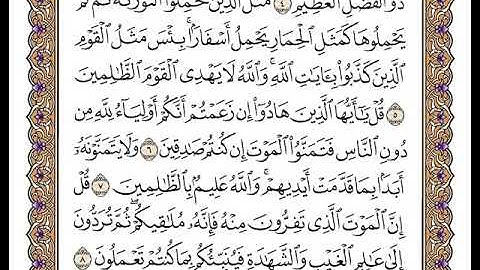 ذُو ٱلْفَضْلِ ٱلْعَظِيمِ ٤ مَثَلُ ٱلَّذِينَ حُمِّلُوا۟ ٱلتَّوْرَىٰةَ ثُمَّ لَمْ
يَحْمِلُوهَا كَمَثَلِ ٱلْحِمَارِ يَحْمِلُ أَسْفَارًۢا ۚ بِئْسَ مَثَلُ ٱلْقَوْمِ
ٱلَّذِينَ كَذَّبُوا۟ بِـَٔايَـٰتِ ٱللَّهِ ۚ وَٱللَّهُ لَا يَهْدِى ٱلْقَوْمَ ٱلظَّـٰلِمِينَ
٥ قُلْ يَـٰٓأَيُّهَا ٱلَّذِينَ هَادُوٓا۟ إِن زَعَمْتُمْ أَنَّكُمْ أَوْلِيَآءُ لِلَّهِ مِن
دُونِ ٱلنَّاسِ فَتَمَنَّوُا۟ ٱلْمَوْتَ إِن كُنتُمْ صَـٰدِقِينَ ٦ وَلَا يَتَمَنَّوْنَهُۥٓ
أَبَدًۢا بِمَا قَدَّمَتْ أَيْدِيهِمْ ۚ وَٱللَّهُ عَلِيمٌۢ بِٱلظَّـٰلِمِينَ ٧ قُلْ
إِنَّ ٱلْمَوْتَ ٱلَّذِى تَفِرُّونَ مِنْهُ فَإِنَّهُۥ مُلَـٰقِيكُمْ ۖ ثُمَّ تُرَدُّونَ
إِلَىٰ عَـٰلِمِ ٱلْغَيْبِ وَٱلشَّهَـٰدَةِ فَيُنَبِّئُكُم بِمَا كُنتُمْ تَعْمَلُونَ ٨